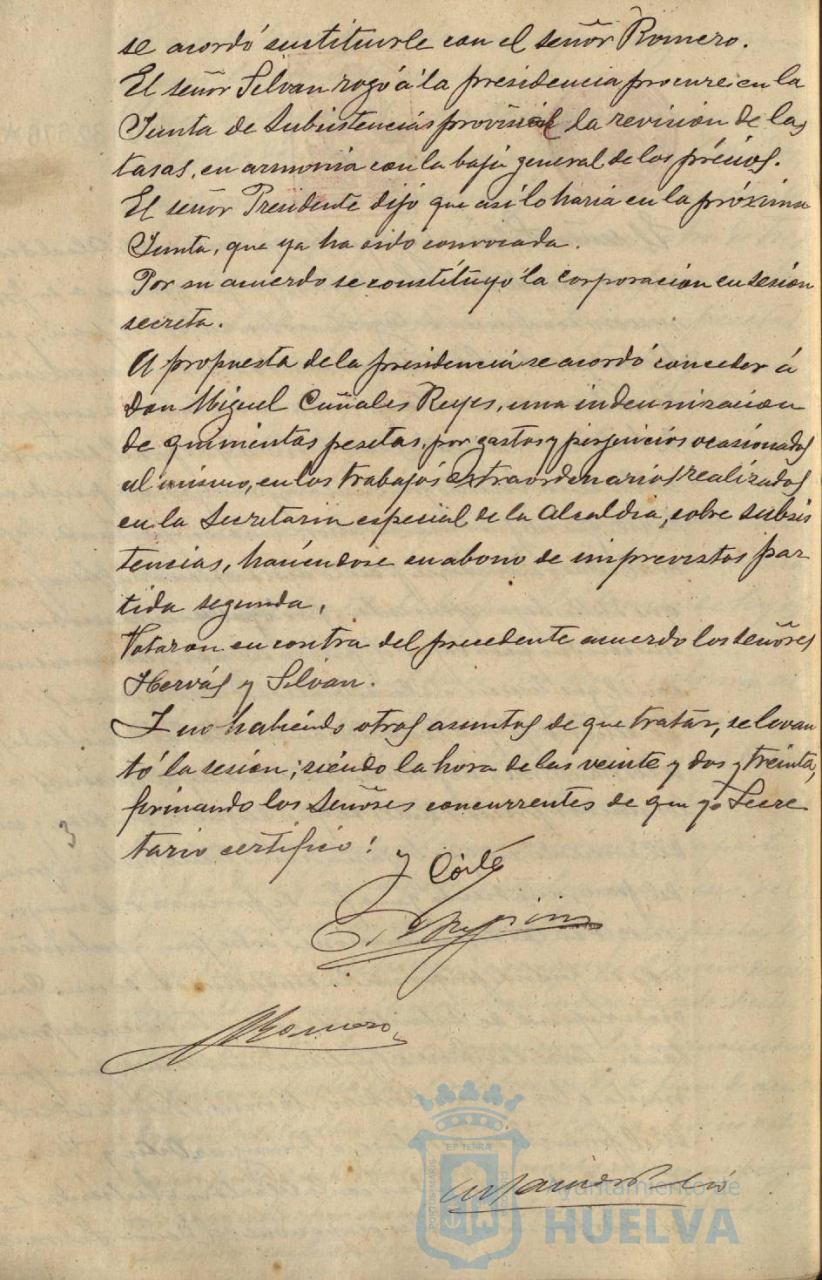 se acordó sustituirle con el señor Romero.
El señor Silvan rogó á la presidencia procure en la
Junta de Subsistencias provincial la revisión de las
tasas, en armonia con la baja general de los précios.
El señor Presidente dijo que asi lo haria en la próxima
Junta, que ya ha sido convocada.
Por su acuerdo se constituyó la corporación en sesión
secreta.
A propuesta de la presidencia se acordó conceder á
Don Miguel Cañales Reyes, una indemnizacion
de quinientas pesetas, por gastos y perjuicios ocasionados
al mismo, en los trabajos extraordenarios realizados
en la Secretaria especial de la Alcaldia, sobre subsis
tencias, haciéndose en abono de imprevistos par
tida segunda,
Votaron en contra del precedente acuerdo los señores
Hervás y Silvan.
Y no habiendo otros asuntos de que tratar, se levan
tó la sesión; siendo la hora de las veinte y dos y treinta,
firmando los Señores concurrentes de que yo Secre
tario certifico:
3
y Corté
Romero
EP TERRA
Ayuntamiento de
HUELVA